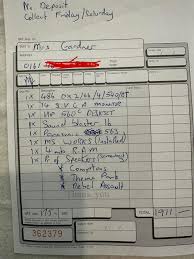 No Deposit
Collect Friday/Saturday
Mrs Gardner
0161
1x 486 DX2/66/4/540/SP
1x 14 SVGA MONITOR
1x HP 560C DESKJET
1x Sound Blaster 16
1x Panasonic 563
1x MS WORKS (installed)
1x 4 mb RAM
1x Pr of Speakers
* Theme Park
* Rebel Assault
THANK YOU
TOTAL
1911
362379